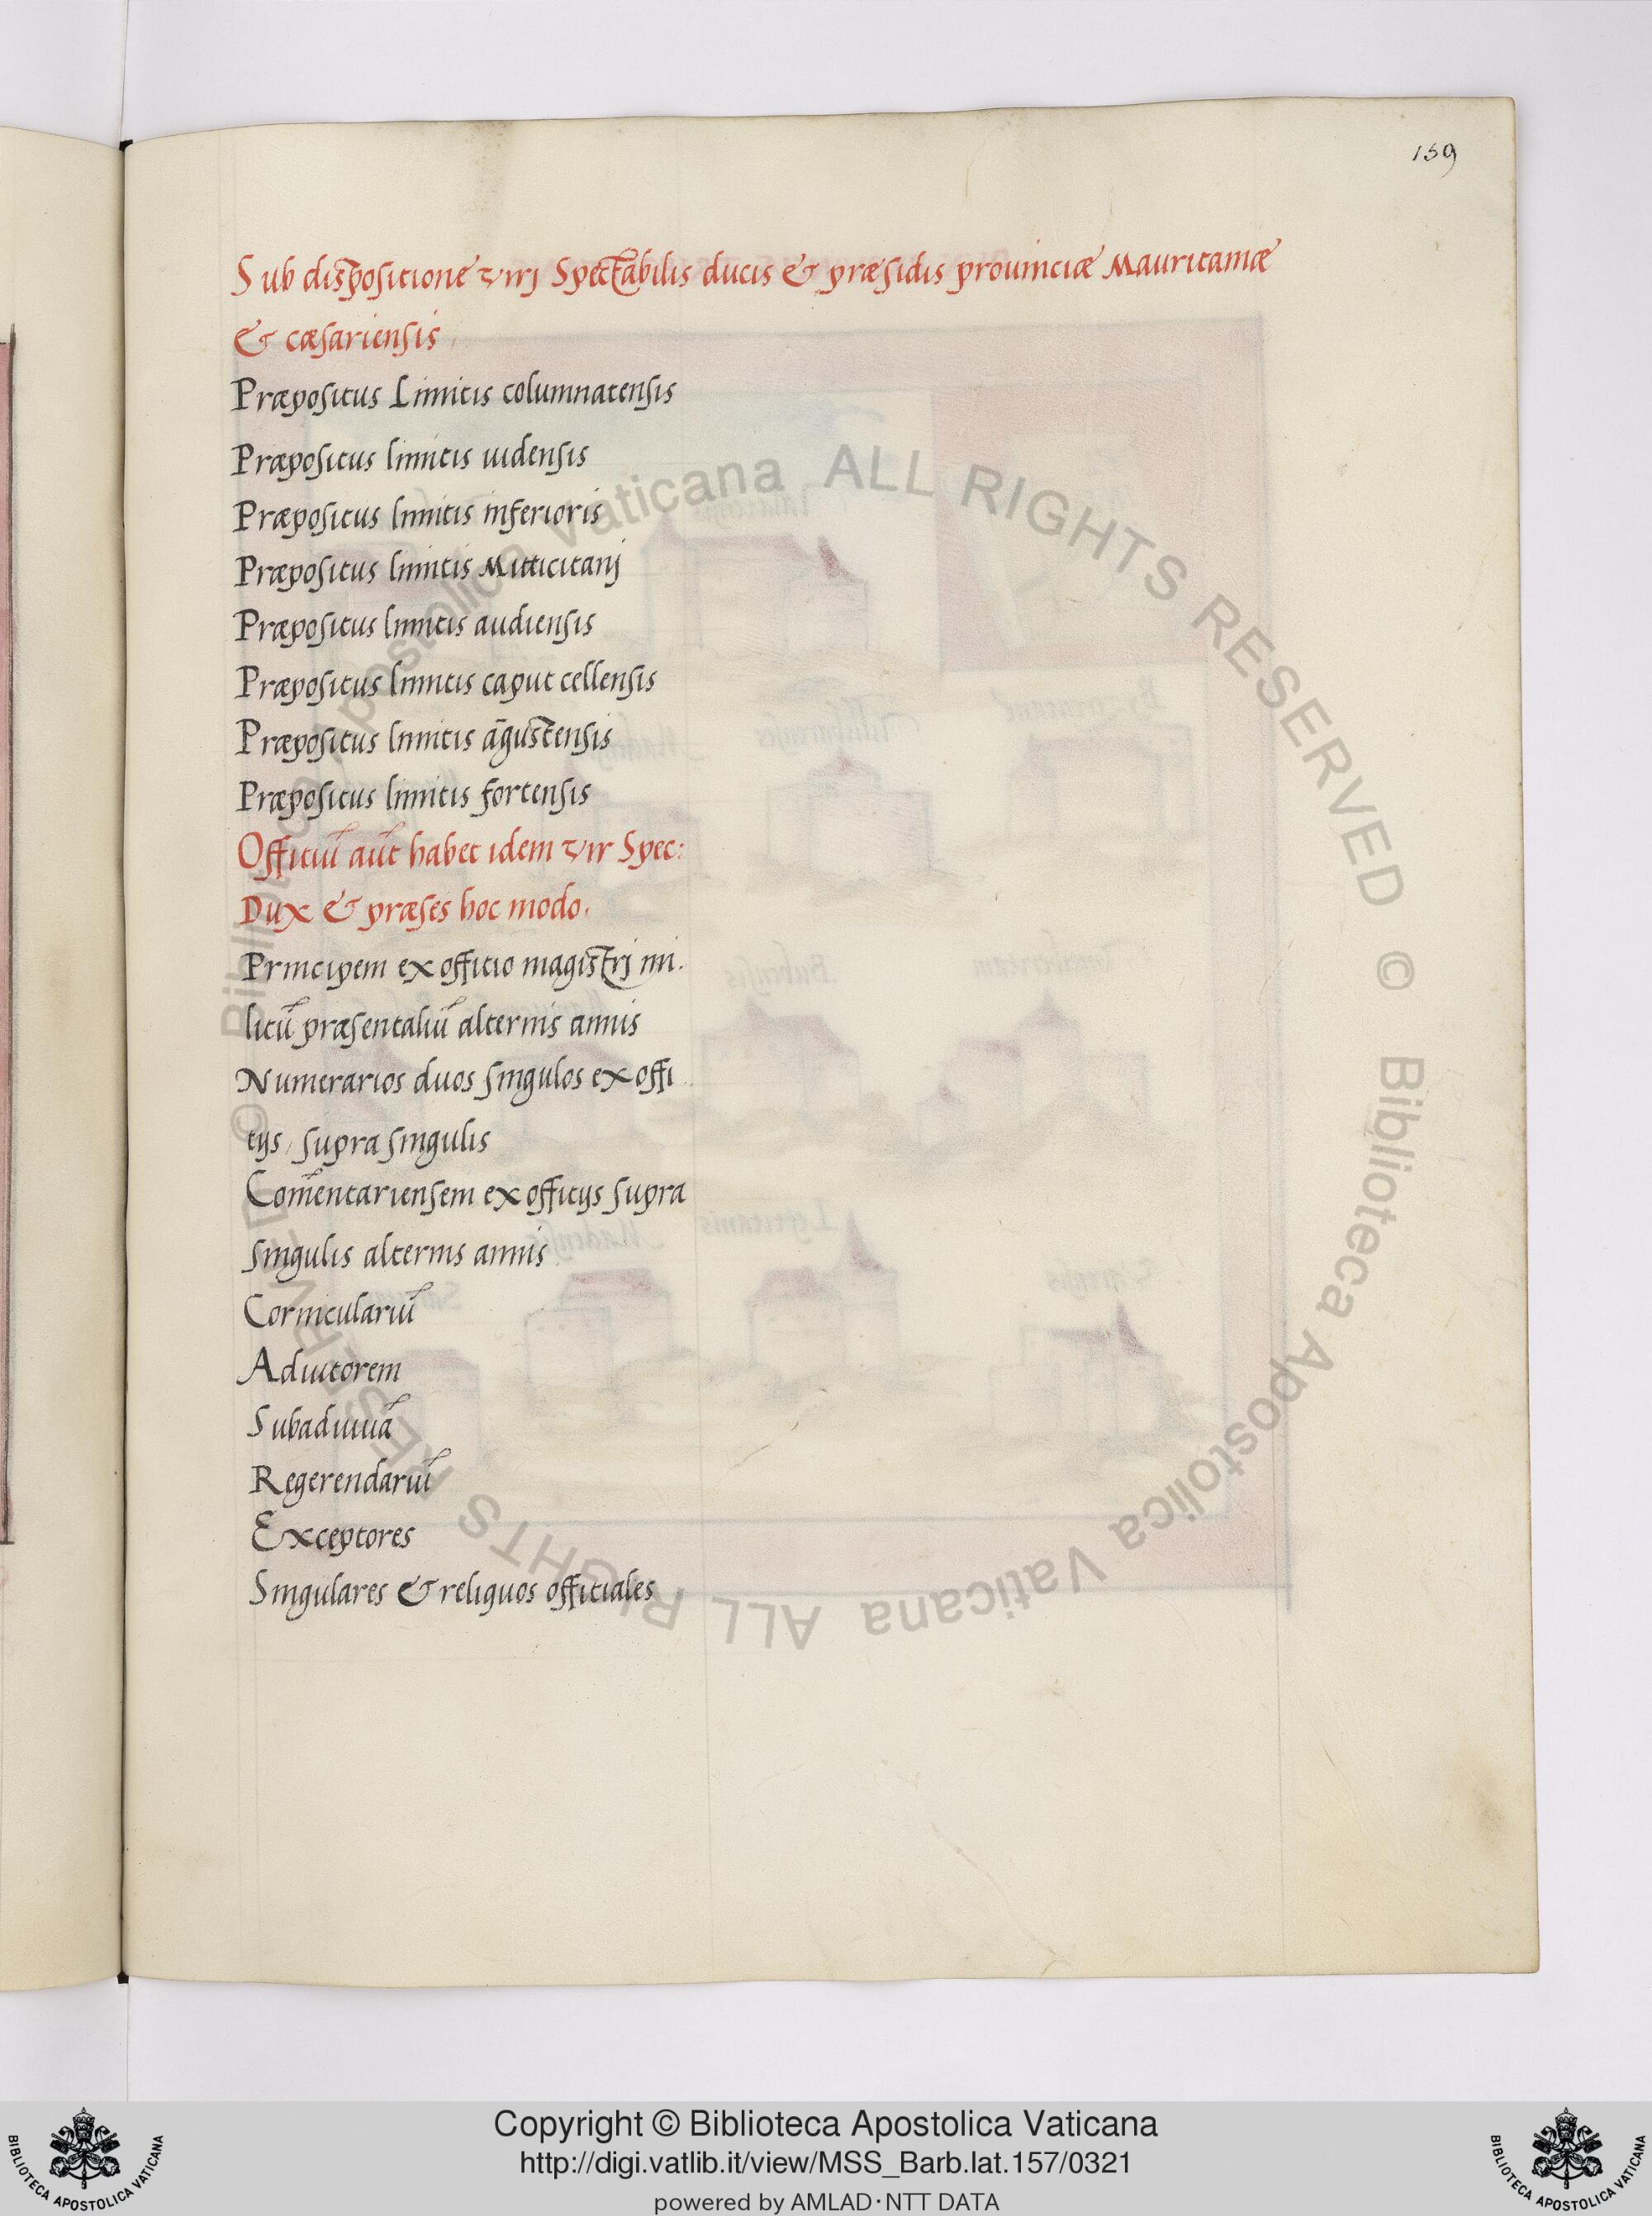 159
Sub dispositione viri Spectabilis ducis & præsidis prouinciæ Mauritaniæ
& cæsariensis
Præpositus Limitis columnatensis
Præpositus limitis uidensis
Præpositus limitis inferioris
Præpositus limitis Mitticitanj
Præpositus limitis audiensis
Præpositus limitis caput cellensis
Præpositus limitis āgustensis
Præpositus limitis fortensis
Officiū aūt habet idem vir Spec:
Dux & præses hoc modo.
Principem ex officio magistrj mi.
litū præsentaliū alternis annis
Numerarios duos singulos ex offi
cijs, supra singulis
Com̄entariensem ex officijs supra
singulis alternis annis
Corniculariū
Adiutorem
Subadiuuā
Regerendariū
Exceptores
Singulares & reliquos officiales
© Biblioteca Apostolica Vaticana ALL RIGHTS RESERVED © Biblioteca Apostolica Vaticana ALL RIGHTS RESERVED
Copyright © Biblioteca Apostolica Vaticana
http://digi.vatlib.it/view/MSS_Barb.lat.157/0321
powered by AMLAD·NTT DATA
BIBLIOTECA APOSTOLICA VATICANA
BIBLIOTECA APOSTOLICA VATICANA